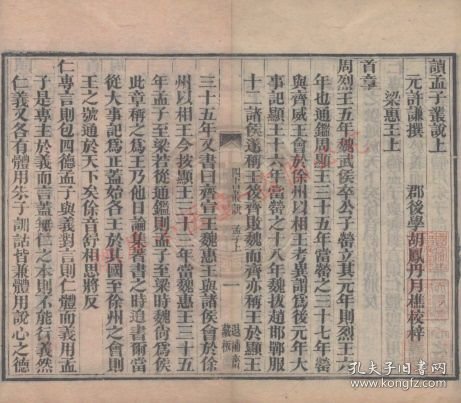 讀孟子叢說上
元許謙撰　郡後學胡鳳丹月樵校梓
梁惠王上
首章
周烈王五年魏武侯卒公子罃立其元年則烈王六
年也通鑑周顯王三十五年當罃之三十七年書
與齊威王會於徐州以相王考異謂為後元年大
事記顯王十六年當罃之十八年魏拔趙邯鄲服
十二諸侯遂稱王後齊敗魏而齊亦稱王於顯王
四書叢說
孟子上
一
退補齋
藏板
三十五年又書曰齊宣王魏惠王與諸侯會於徐
州以相王今按顯王三十三年當魏惠王三十五
年孟子至梁若從通鑑則孟子至梁時魏尚為侯
此章稱之為王乃他日論集著書之時追書爾當
從大事記為正蓋始各王於其國至徐州之會則
王之號通於天下矣徐音舒相思將反
仁專言則包四德孟子與義對言則仁體而義用孟
子是專主於義而言蓋無仁之本則不能行義然
仁義又各有體用朱子訓詁皆兼體用說心之德
孔夫子旧书网